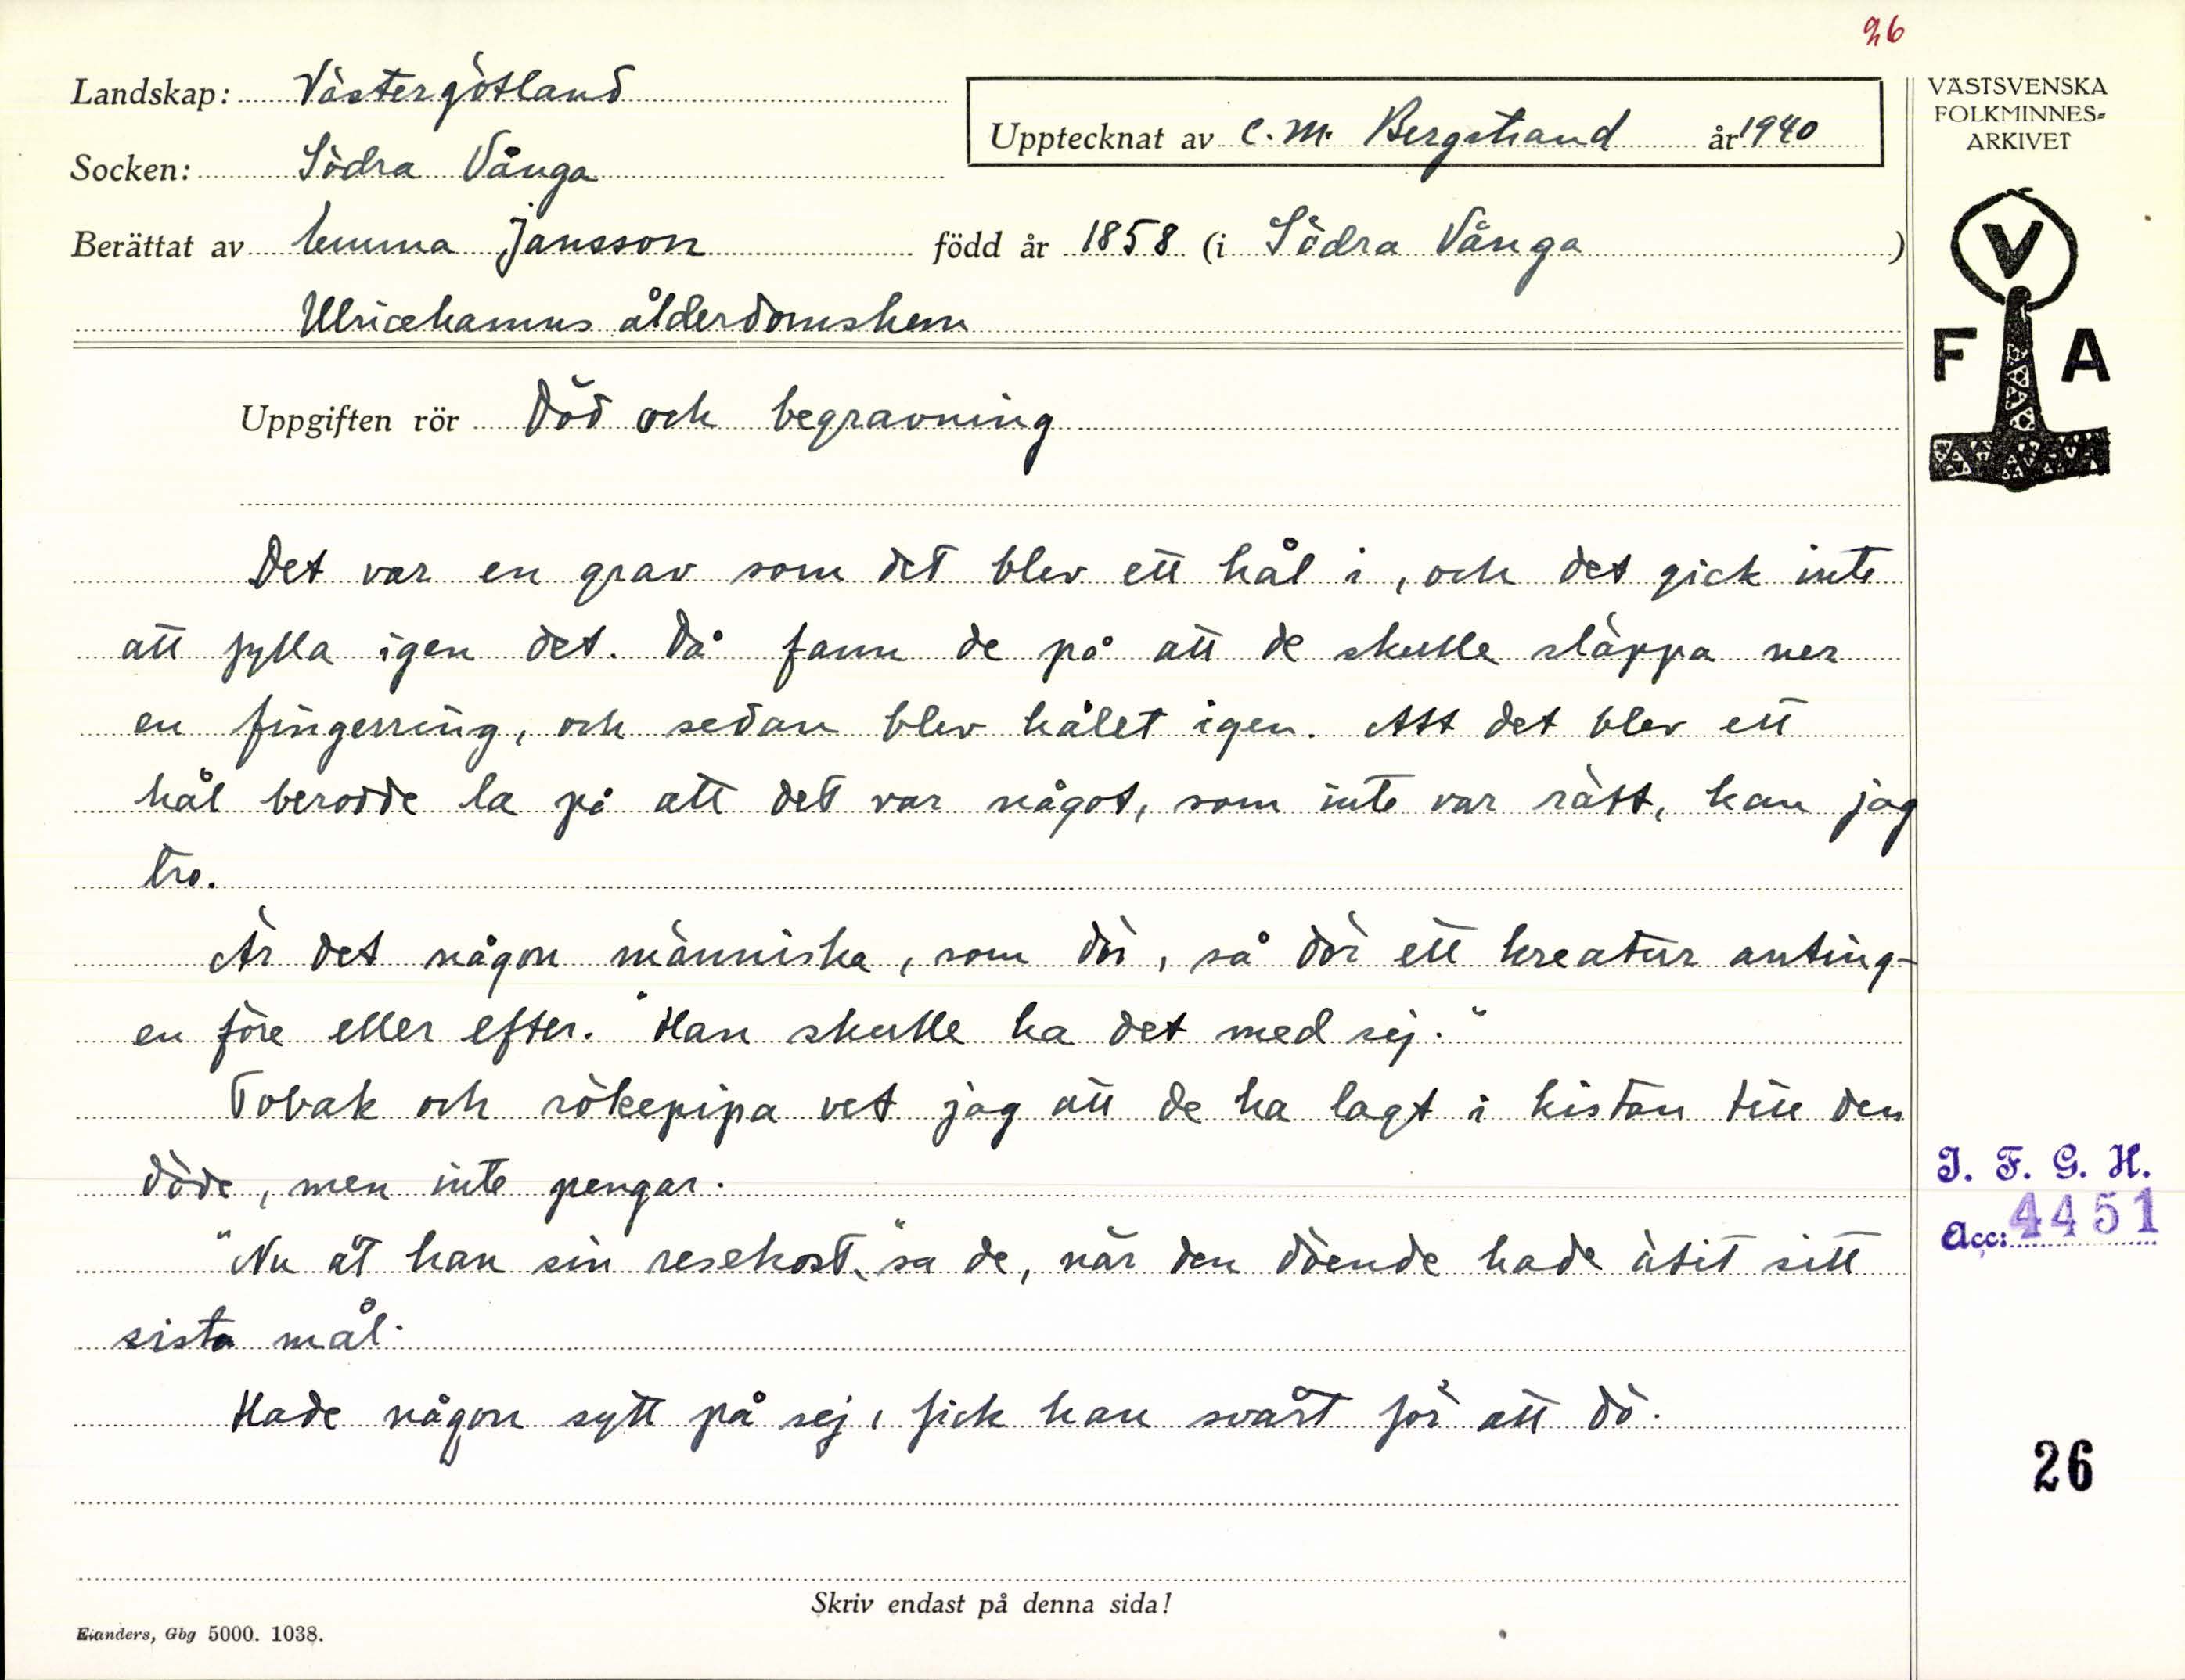 26
Landskap: Västergötland
Upptecknat av C. M. Bergstrand år 1940
Socken: Södra Vånga
Berättat av Emma Jansson född år 1858 (i Södra Vånga)
Ulricehamns ålderdomshem
Uppgiften rör Död och begravning
Det var en grav som det blev ett hål i, och det gick inte
att fylla igen det. Då fann de på att de skulle släppa ner
en fingerring, och sedan blev hålet igen. Att det blev ett
hål berodde la på att det var något, som inte var rätt, kan jag
tro.
Är det någon människa, som dör, så dör ett kreatur anting-
en före eller efter. "Han skulle ha det med sej."
Tobak och rökepipa vet jag att de ha lagt i kistan till den
döde, men inte pengar.
"Nu åt han sin resekost," sa de, när den döende hade ätit sitt
sista mål.
Hade någon sytt på sej, fick han svårt för att dö.
Skriv endast på denna sida!
Elanders, Gbg 5000. 1038.
VÄSTSVENSKA
FOLKMINNES=
ARKIVET
V
F A
I. F. G. H.
Acc: 4451
26